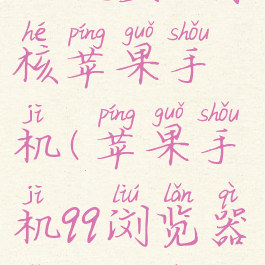 hé píng guǒ shǒu
核苹果手
jī píng guǒ shǒu
机(苹果手
jī liú lǎn qì
机99浏览器